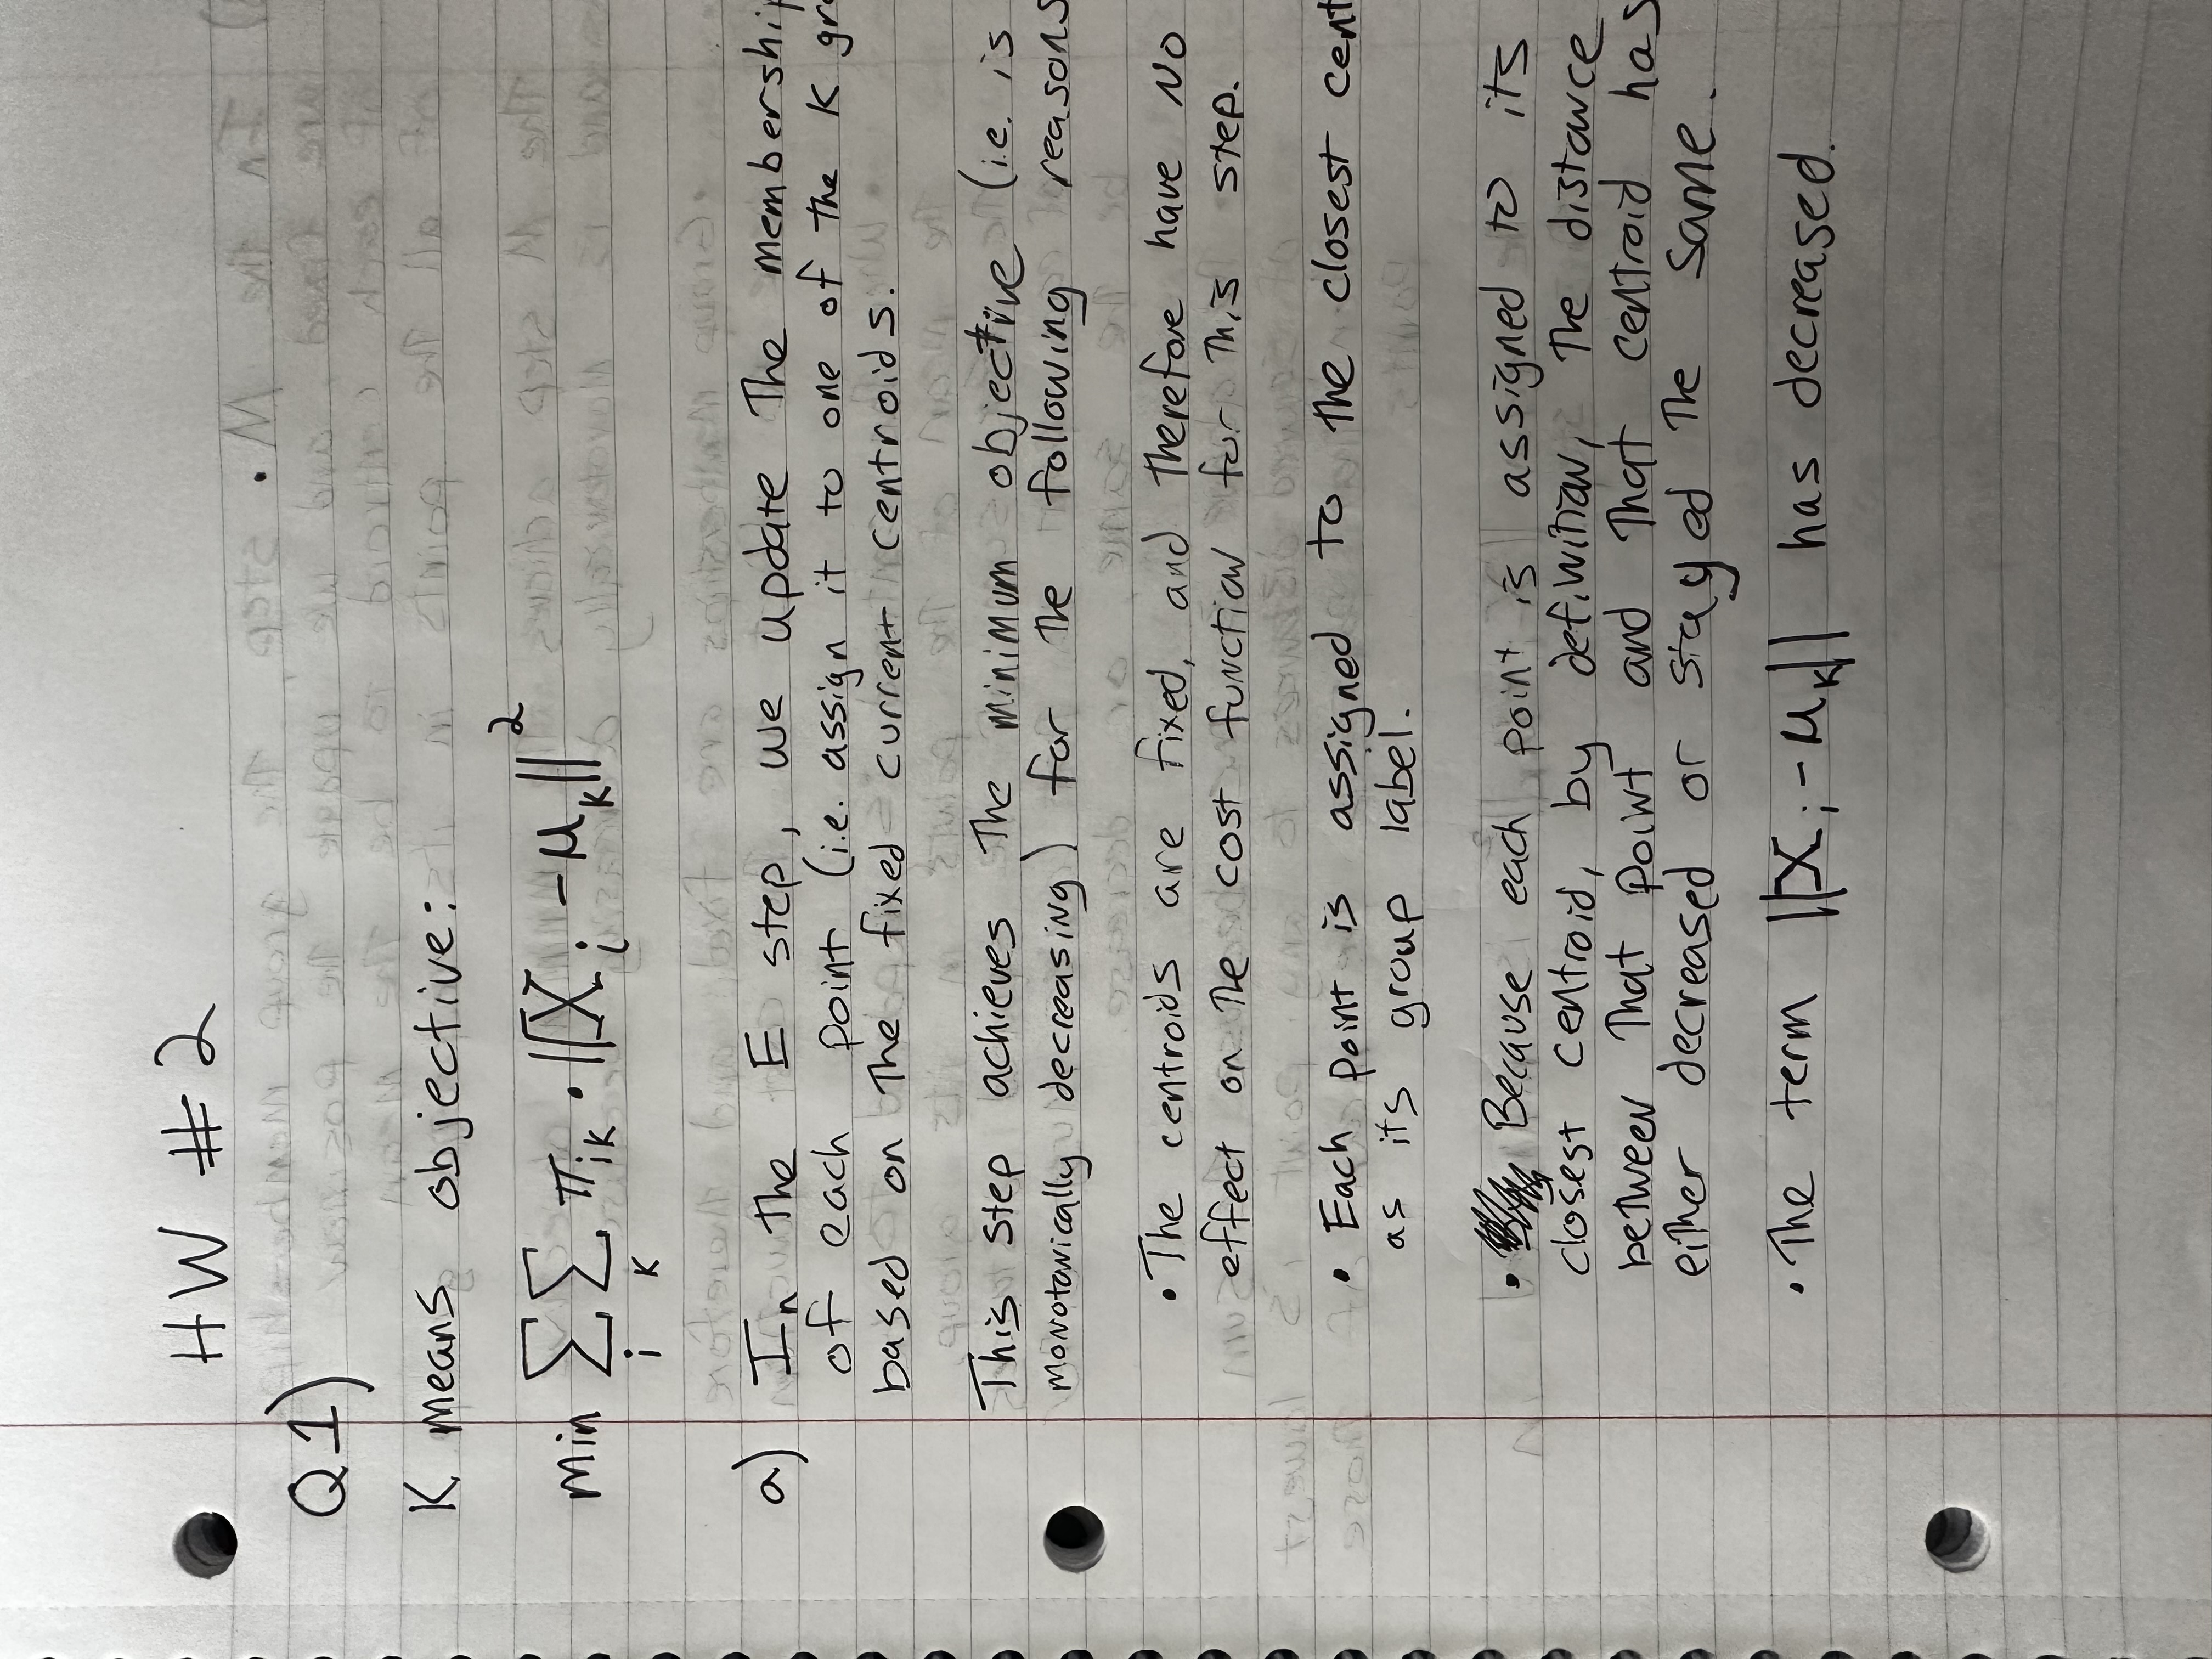 HW #2
Q1)
K means objective:
min ∑_i ∑_k π_ik · ||X_i - μ_k||^2
a) In the E step, we update the membership
of each point (i.e. assign it to one of the K gro
based on the fixed current centroids.
This step achieves the minimum objective (i.e. is
monotonically decreasing) for the following reasons
• The centroids are fixed, and therefore have NO
effect on the cost function for this step.
• Each point is assigned to the closest cent
as its group label.
• Because each point is assigned to its
closest centroid, by definition, the distance
between that point and that centroid has
either decreased or stayed the same.
• The term ||X_i - μ_k|| has decreased.